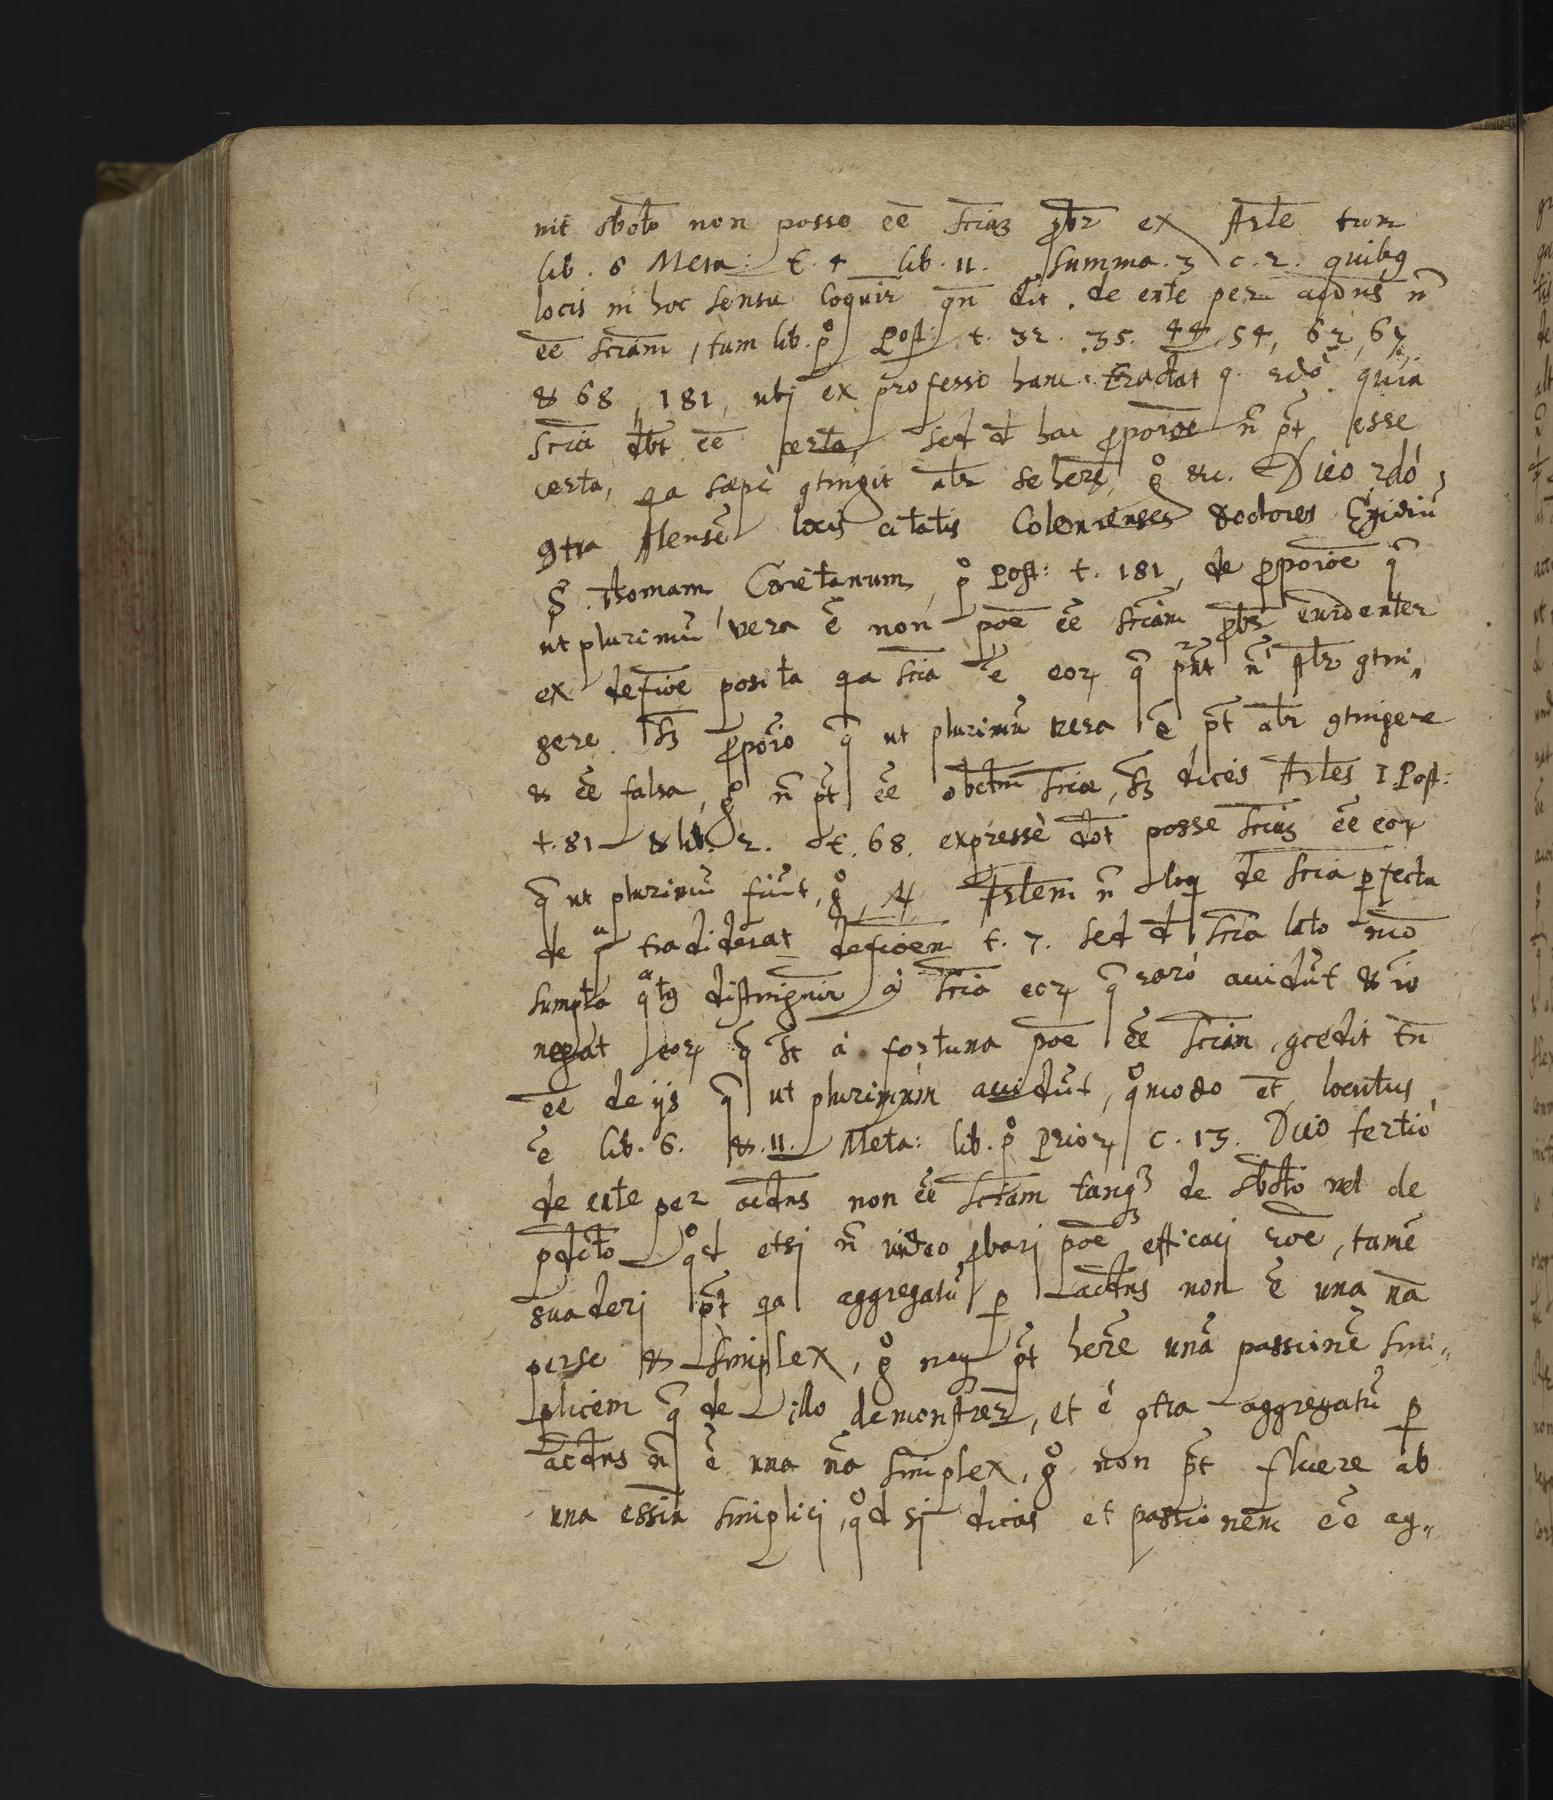 nit sbcto non posse eē sciaʒ p̄br ex Arle tum
lib. 6 Meta: t. 4 lib. 11. summa. 3 c. 2. quibꝯ
locis in hoc sensu loquir qn̄ dit, de ente per acdns n̄
eē sciam, tum lib. pº Post: t. 32. 35. 44, 54, 62, 67,
& 68, 181, ubj ex professo hanc tractat q. 2dó. quia
scia dbt eē certa, sed d hac ꝓpoioe n̄ pt̄ esse
certa, qa sæpè ꝯtingit alr se here, gº &c. Dico 2dó,
ꝯtra Alensē locis citatis Colonienses doctores Egidiū
S. Thomam Caietanum, pº Post: t. 181, de ꝓpoioe q̄
ut plurimū vera ē non poē eē sciam p̄br evidenter
ex defioe posita qa scia ē eorꝝ q̄ pn̄t n̄ alr ꝯtin„
gere. sʒ ꝓpoio q̄ ut plurimū vera ē pt̄ alr ꝯtingere
& eē falsa, gº n̄ pt̄ eē obctm sciæ, sʒ dices Arles 1 Post:
t. 81 & lib. 2. t. 68. expressè dot posse sciaʒ eē eorꝝ
q̄ ut plurimū fiūt, gº, N Arlem n̄ loq de scia ꝑfecta
de qª tradiderat defioem t. 7. sed d scia lato mō
sumpta qªtꝯ distinguir à scia eorꝝ q̄ raró accidūt & iō
negat eorꝝ q̄ st à fortuna poē eē sciam, ꝯcedit tn̄
eē de ijs q̄ ut plurimùm accidūt, qºmodo et locutus
ē lib. 6. & 11. Meta: lib. pº Priorꝝ c. 13. Dico tertió
de ente per acdns non eē sciam tanqʒ de sbcto vel de
pdcto qºd etsi n̄ video ꝓbari poē efficacj roē, tamē
suaderj pt̄ qa aggregatū ꝑ acdns non ē una na
perse & simplex, gº neqʒ pt̄ here unā passionē sim„
plicem q̄ de illo demonstrer, et ē ꝯtra aggregatū ꝑ
acdns n̄ ē una na simplex, gº non pt̄ fluere ab
una essia simplicj, qºd sj dicas et passionem eē ag„